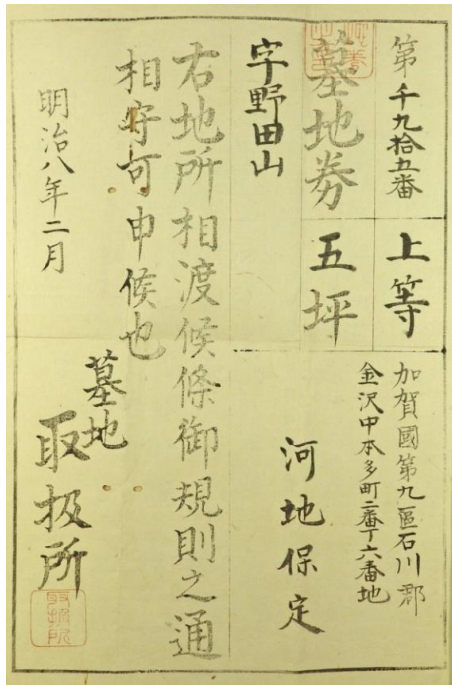 第千九拾五番
上等
加賀國第九區石川郡
金沢中本多町二番丁六番地
墓地券
五坪
字野田山
河地保定
右地所相渡候條御規則之通
相守可申候也
明治八年二月
墓地
取扱所